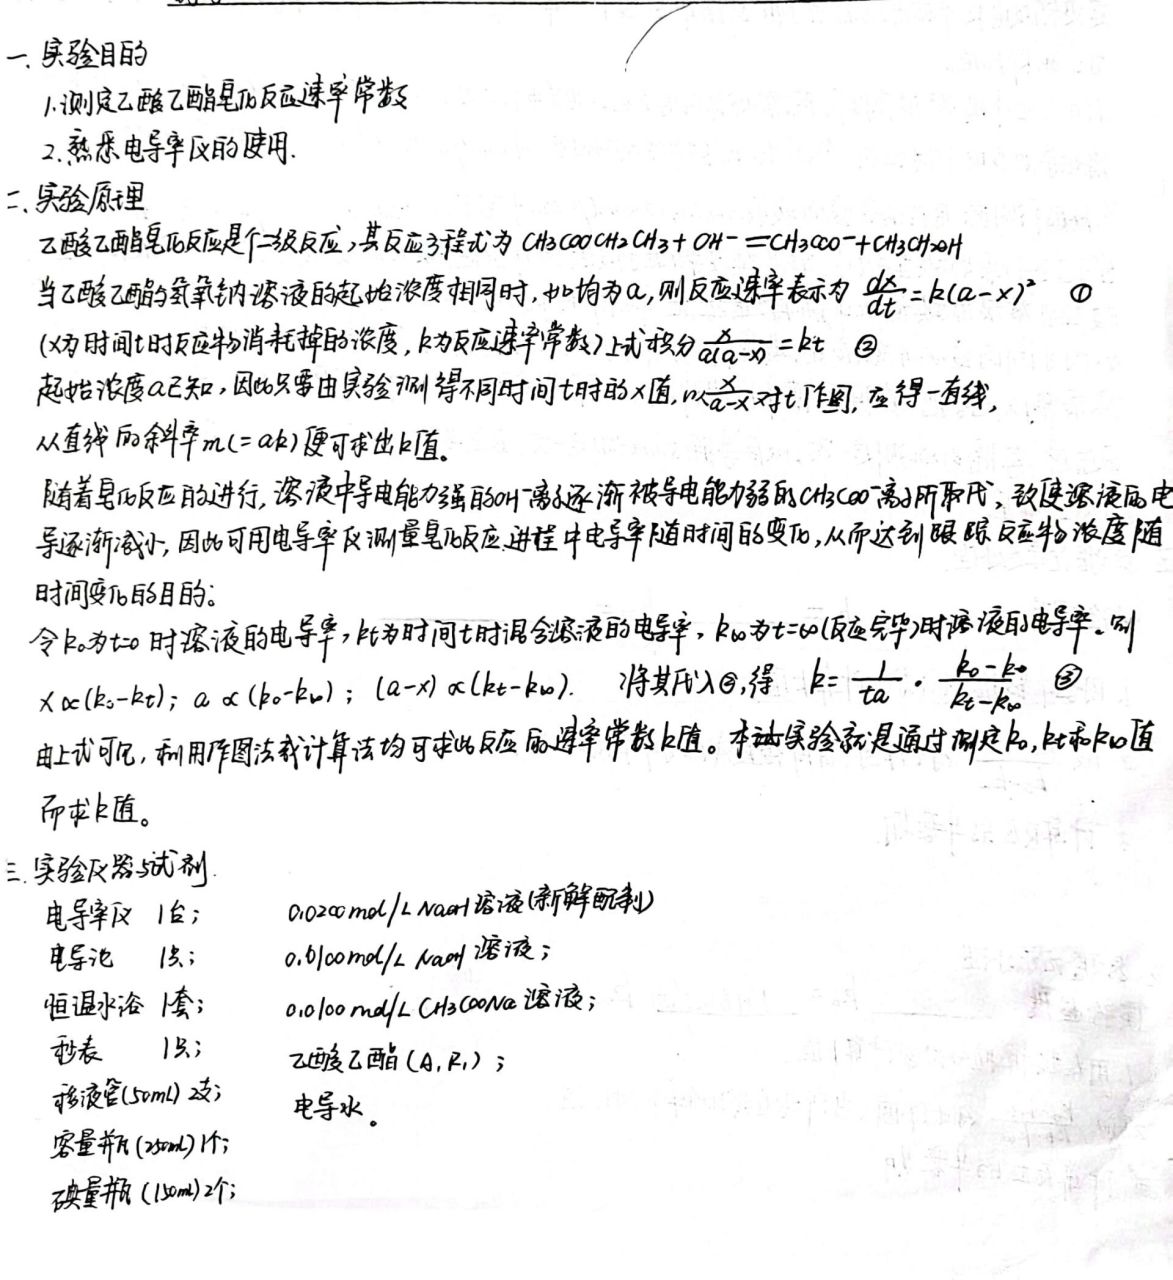 一. 实验目的
1. 测定乙酸乙酯皂化反应速率常数
2. 熟悉电导率仪的使用.
二. 实验原理
乙酸乙酯皂化反应是个二级反应,其反应方程式为 CH3COOCH2CH3 + OH⁻ = CH3COO⁻ + CH3CH2OH
当乙酸乙酯的氢氧钠溶液的起始浓度相同时,如均为a,则反应速率表示为 dx/dt = k(a-x)² ①
(x为时间t时反应物消耗掉的浓度,k为反应速率常数)上式积分 x/a(a-x) = kt ②
起始浓度a已知,因此只要由实验测得不同时间t时的x值,以x/a-x对t作图,应得一直线,
从直线的斜率m(=ak)便可求出k值。
随着皂化反应的进行,溶液中导电能力强的OH⁻离子逐渐被导电能力弱的CH3COO⁻离子所取代,致使溶液的电
导逐渐减小,因此可用电导率仪测量皂化反应进程中电导率随时间的变化,从而达到跟踪反应物浓度随
时间变化的目的。
令k₀为t=0时溶液的电导率,kt为时间t时混合溶液的电导率,k∞为t=∞(反应完毕)时溶液的电导率。则
x∝(k₀-kt); a∝(k₀-k∞); (a-x)∝(kt-k∞). 将其代入②,得 k = 1/ta · k₀-k∞/kt-k∞ ③
由上式可见,利用作图法或计算法均可求出反应的速率常数k值。本实验就是通过测定k₀,kt和k∞值
而求k值。
三. 实验仪器与试剂.
电导率仪 1台; 0.0200mol/L NaOH溶液(新鲜配制)
电导池 1只; 0.0100mol/L NaOH溶液;
恒温水浴 1套; 0.0100mol/L CH3COONa溶液;
秒表 1只; 乙酸乙酯(A,R,);
移液管(50mL) 2支; 电导水。
容量瓶(250mL) 1个;
碘量瓶(150mL) 2个;